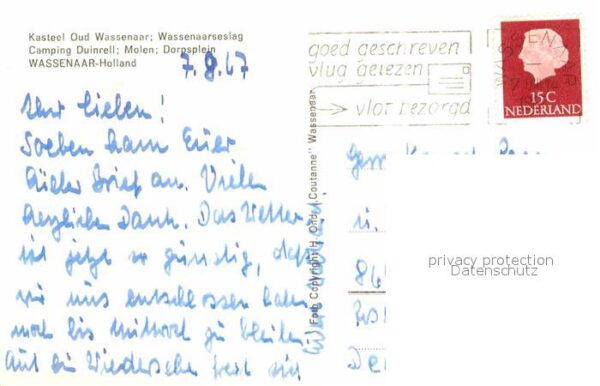 Kasteel Oud Wassenaar; Wassenaarseslag
Camping Duinrell; Molen; Dorpsplein
WASSENAAR-Holland
7.9.67
Ihr Lieben!
Soeben kam Euer
lieber Brief an. Vielen
herzlichen Dank. Das Wetter
ist jetzt so günstig, daß
wir uns entschlossen haben
noch bis Mittwoch zu bleiben.
Auf ein Wiedersehn freut sich
Foto Copyright H. Ond. „Coutanne" Wassenaar
goed geschreven
vlug gelezen
vlot bezorgd
15 C
NEDERLAND
u.
privacy protection
Datenschutz